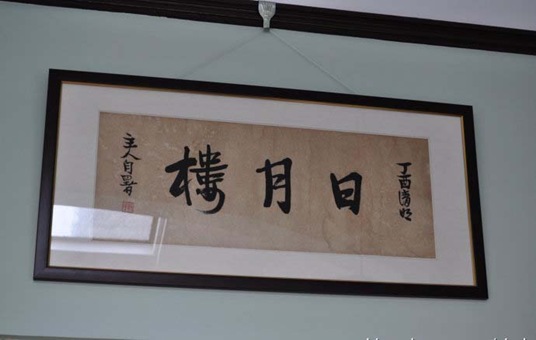 丁酉清明
日月樓
主人自署